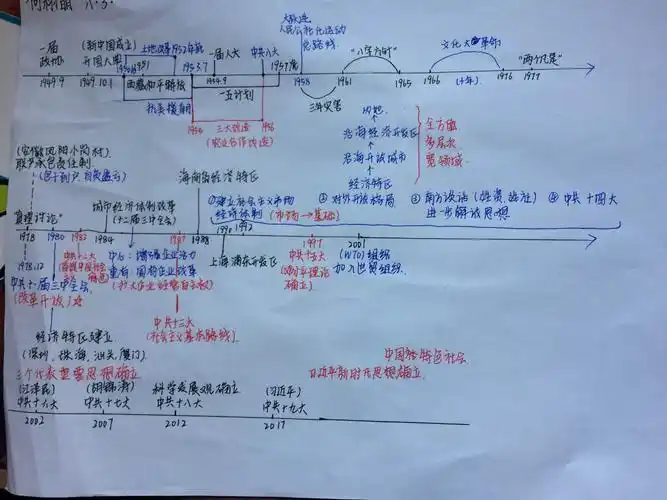 大跃进
人民公社化运动
总路线
一届
政协
(新中国成立)
开国大典
土地改革1952年底
一届人大
中共八大
1957底
"八字方针"
文化大革命
(十年)
"两个凡是"
1949.9
1949.10.1
1950
1951
1953.7
1954.9
1958
1961
1965
1966
1976
1977
西藏和平解放
抗美援朝
一五计划
三年灾害
1956
三大改造
(农业合作改造)
内地
↑
沿海经济开放区
↑
沿海开放城市
↑
经济特区
全方位
多层次
宽领域
(安徽凤阳小岗村)
联产承包责任制
(包干到户 自负盈亏)
海南省经济特区
①建立社会主义市场
经济体制 (市场→基础)
②对外开放格局
③南方谈话 (姓资姓社)
④中共十四大
进一步解放思想
"真理讨论"
城市经济体制改革
(十二届三中全会)
1978
1980
1982
1984
1987
1988
1990
1992
1997
2001
1978.12
中共十一届三中全会
(改革开放)
中共十二大
中心:增强企业活力
重点 国有企业改革
(扩大企业经营自主权)
上海浦东开发区
中共十五大
(邓平理论
确立)
(WTO)组织
加入世贸组织
中共十三大
(社会主义基本路线)
经济特区建立
(深圳、珠海、汕头、厦门)
三个代表重要思想确立
(江泽民)
中共十六大
(胡锦涛)
中共十七大
科学发展观确立
中共十八大
(习近平)
中共十九大
中国独特色社会
习近平新时代思想确立
2002
2007
2012
2017